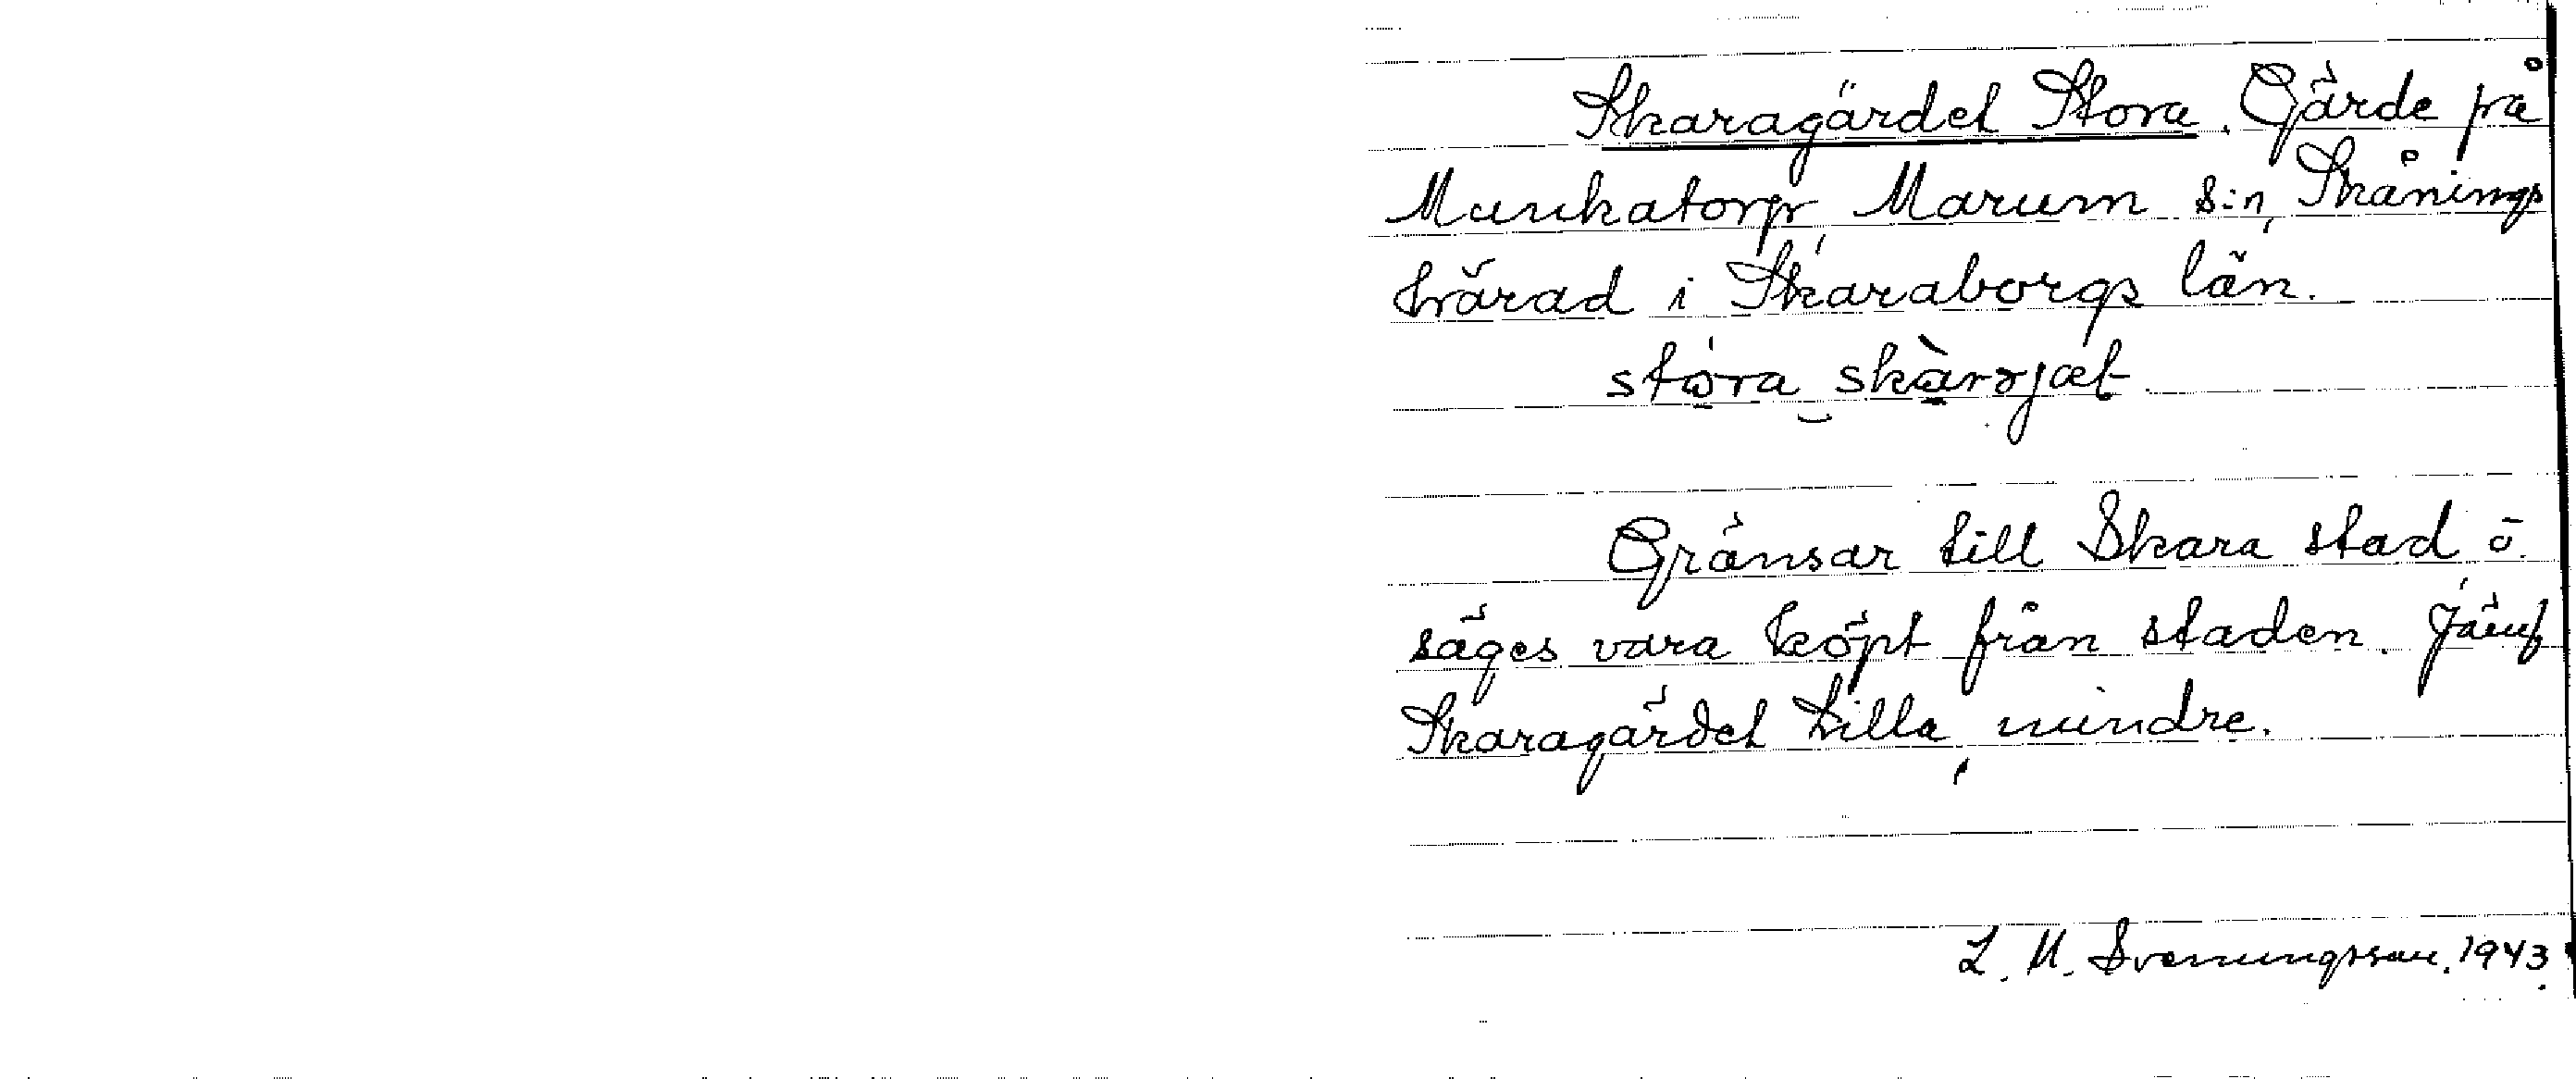 Skaragärdet Stora. Gärde på
Munkatorp, Marum s:n, Skånings
härad i Skaraborgs län.
stora skàrrjæt
Gränsar till Skara stad o.
säges vara köpt från staden. Jämf
Skaragärdet Lilla, mindre.
L. M. Svenungsson. 1943.